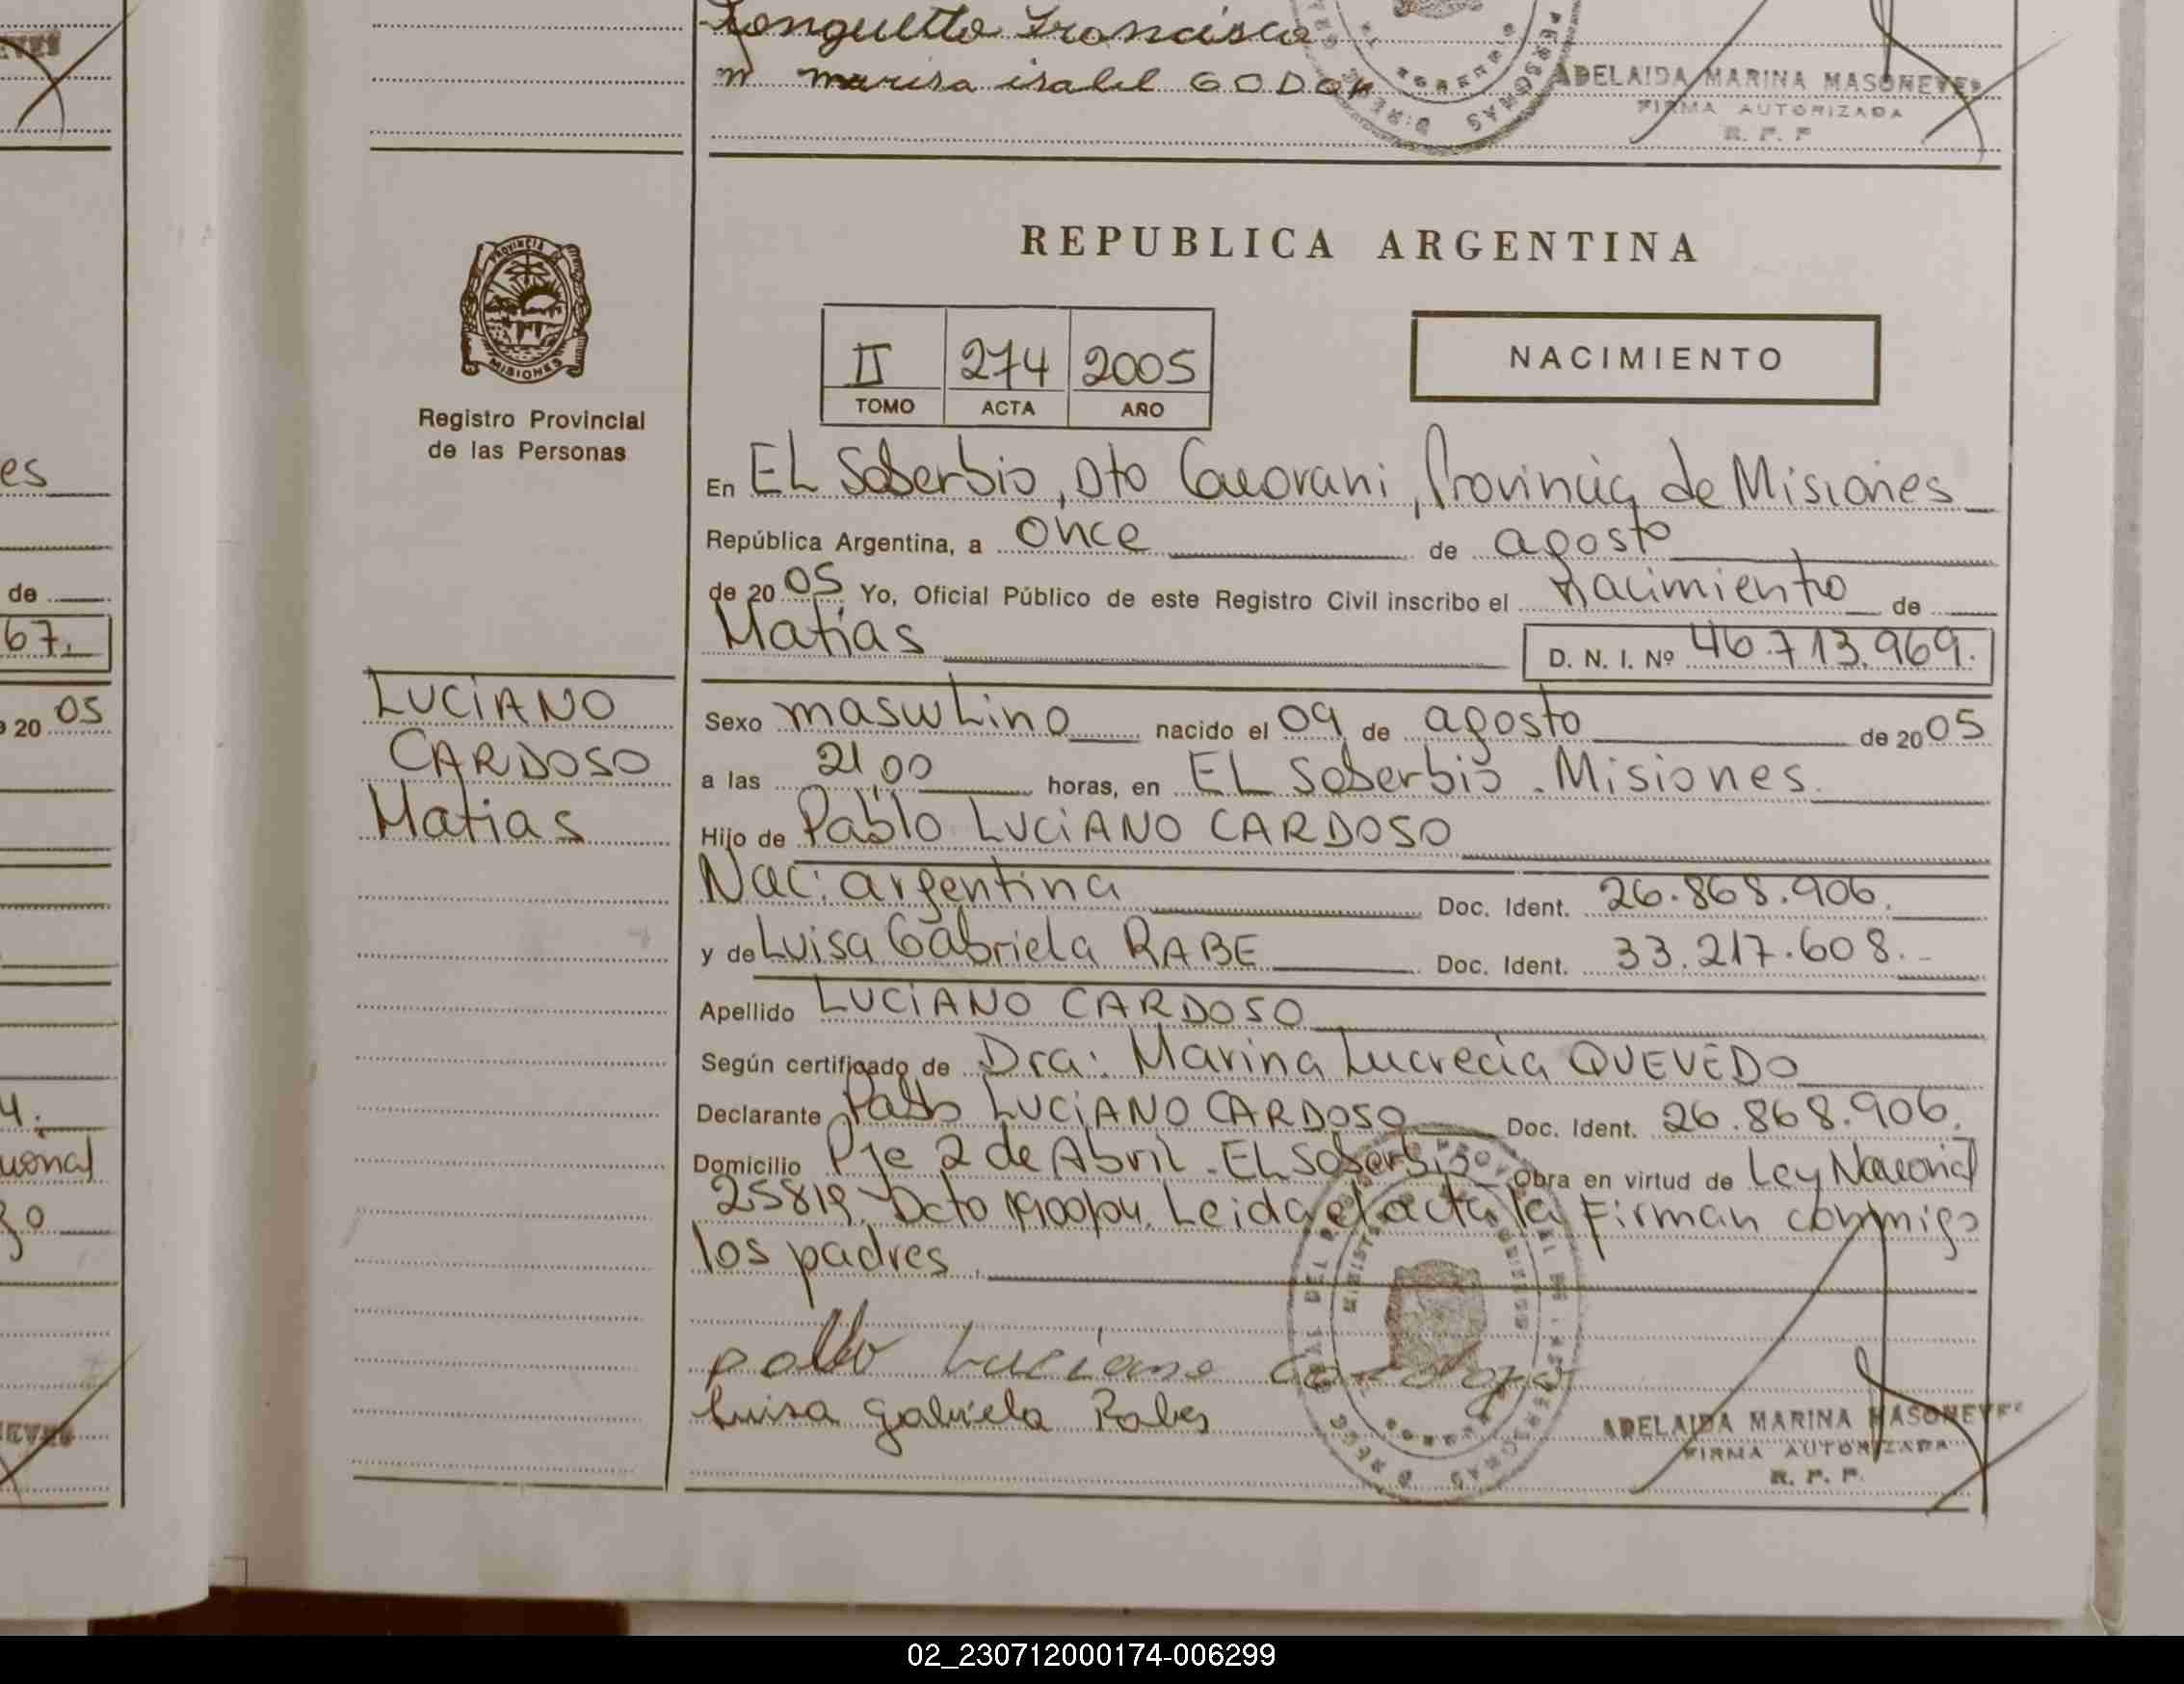 Francisco
marisa isabel GODOY
ADELAIDA MARINA MASONEVES
FIRMA AUTORIZADA
R. P. P
PROVINCIA
MISIONES
Registro Provincial
de las Personas
REPUBLICA ARGENTINA
II 274 2005
TOMO ACTA AÑO
NACIMIENTO
En EL Soberbio, Dto Guarani, Provincia de Misiones
República Argentina, a once de agosto
de 2005 Yo, Oficial Público de este Registro Civil inscribo el nacimiento de
Matias D. N. I. Nº 46.713.969.
LUCIANO
CARDOSO
Matias
Sexo masculino nacido el 09 de agosto de 2005
a las 21,00 horas, en EL Soberbio. Misiones.
Hijo de Pablo LUCIANO CARDOSO
Nac: argentina Doc. Ident. 26.868.906.
y de Luisa Gabriela RABE Doc. Ident. 33.217.608.-
Apellido LUCIANO CARDOSO
Según certificado de Dra: Marina Lucrecia QUEVEDO
Declarante Pablo LUCIANO CARDOSO Doc. Ident. 26.868.906.
Domicilio Pje 2 de Abril. EL Soberbio Obra en virtud de Ley Nacional
25819. Dcto 1900/04. Leida el acta la Firman conmigo
los padres.
pablo Luciano cardozo
Luisa gabriela Rabes
ADELAIDA MARINA MASONEVES
FIRMA AUTORIZADA
R. P. P.
es
de
67.
20 05
4.
ional
02_230712000174-006299